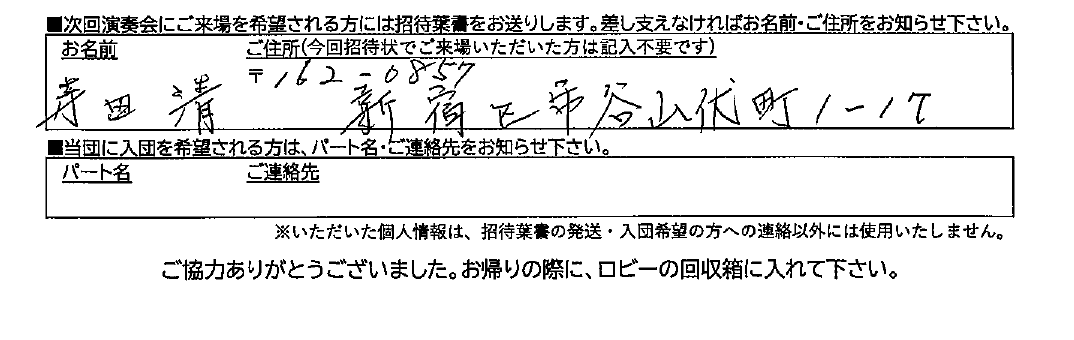 ■次回演奏会にご来場を希望される方には招待葉書をお送りします。差し支えなければお名前・ご住所をお知らせ下さい。
お名前 ご住所(今回招待状でご来場いただいた方は記入不要です)
〒162-0857
寺田 清 新宿区市谷山伏町1-17
■当団に入団を希望される方は、パート名・ご連絡先をお知らせ下さい。
パート名 ご連絡先
※いただいた個人情報は、招待葉書の発送・入団希望の方への連絡以外には使用いたしません。
ご協力ありがとうございました。お帰りの際に、ロビーの回収箱に入れて下さい。